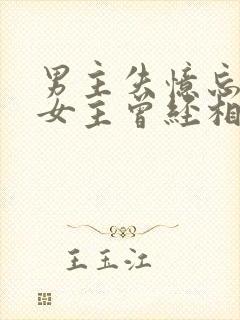 男主失憶忘
女主曾经相
王玉江